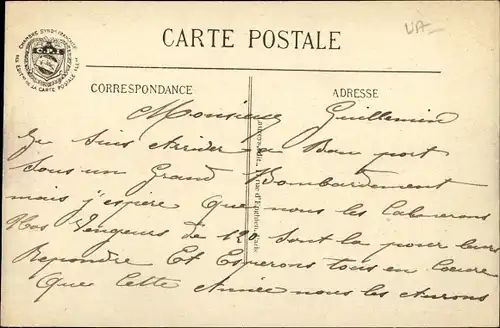 CHAMBRE SYNDle FRANÇAISE
DE LA CARTE POSTALE ILLée
CARTE POSTALE
CORRESPONDANCE
ADRESSE
Monsieur Guillemin
Je suis Arrider a Bon port
sous un Grand Bombardement
mais j'espere Que nous les Calmerons
Nos Vengeurs de 120 Sont la pour leurs
Repondre Et Esperons tous en Coeur
Que Cette Année nous les aurons